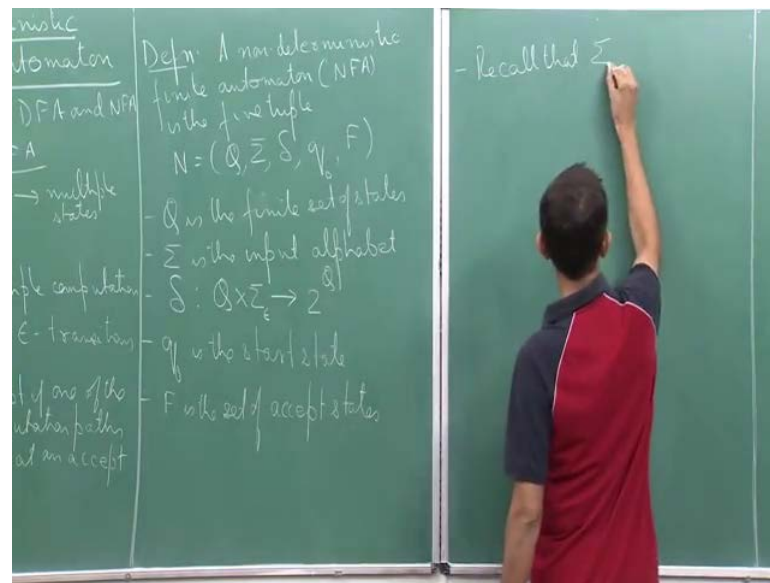 nistic
tomaton
DFA and NFA
A
→ multiple
states
ple computation
ϵ - transitions
pt if one of the
utation paths
at an accept
Defn: A non-deterministic
finite automaton (NFA)
is the five tuple
N = (Q, Σ, δ, q₀, F)
- Q is the finite set of states
- Σ is the input alphabet
- δ : Q × Σ_ϵ → 2^Q
- q₀ is the start state
- F is the set of accept states
- Recall that Σ